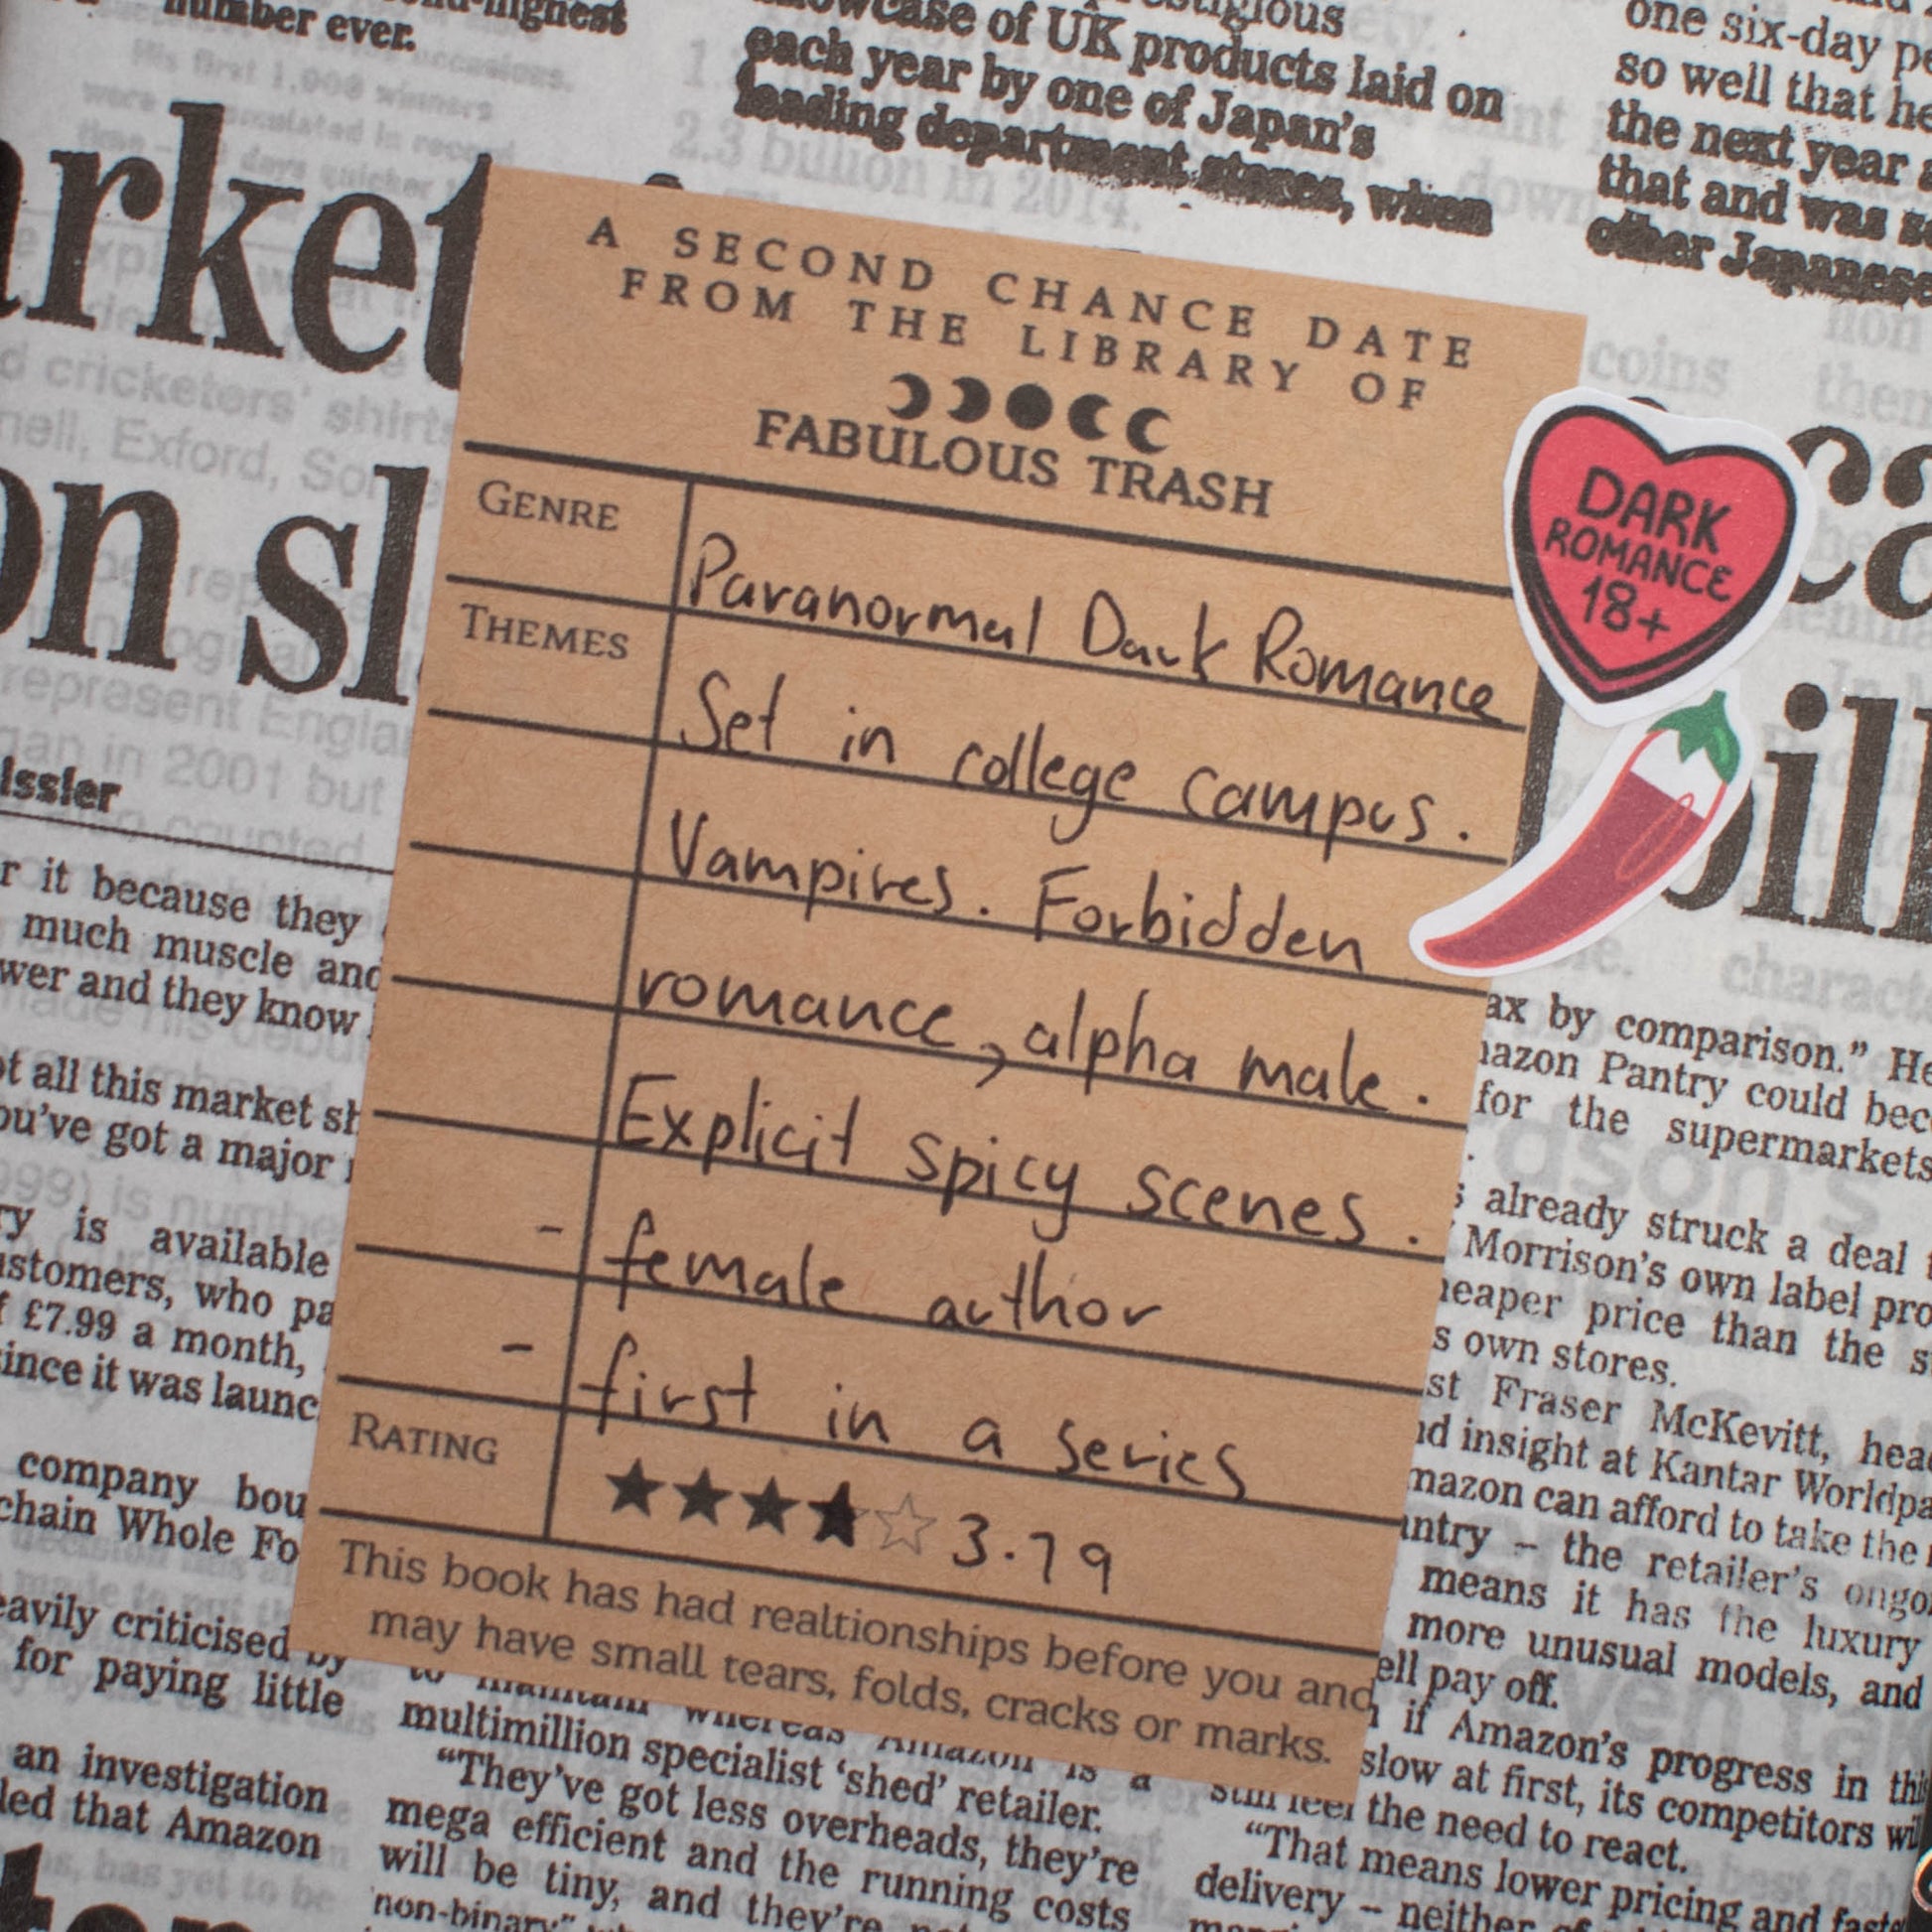 number ever.
showcase of UK products laid on
each year by one of Japan's
leading department stores, when
one six-day
so well that he
the next year
that and was
other Japanese
arket
on sl
issler
r it because they
much muscle and
wer and they know
ot all this market
ou've got a major
ry is available
ustomers, who
f £7.99 a month,
since it was
company
chain Whole
eavily criticised by
for paying little
an investigation
led that Amazon
A SECOND CHANCE DATE
FROM THE LIBRARY OF
FABULOUS TRASH
GENRE
Paranormal Dark Romance
THEMES
Set in college campus.
Vampires. Forbidden
romance, alpha male.
Explicit spicy scenes.
- female author
- first in a series
RATING
★★★★☆ 3.79
This book has had realtionships before you and
may have small tears, folds, cracks or marks.
DARK
ROMANCE
18+
ca
bill
ax by comparison.” He
azon Pantry could
for the supermarkets
already struck a deal
Morrison's own label
heaper price than the
s own stores.
st Fraser McKevitt,
nd insight at Kantar
mazon can afford to take the
antry – the retailer's
means it has the luxury
more unusual models, and
ell pay off.
if Amazon's progress in
slow at first, its competitors
still feel the need to react.
“That means lower pricing and
delivery – neither of
to maintain whereas Amazon is a
multimillion specialist ‘shed’ retailer.
“They've got less overheads, they're
mega efficient and the running costs
will be tiny, and they're
non-binary”